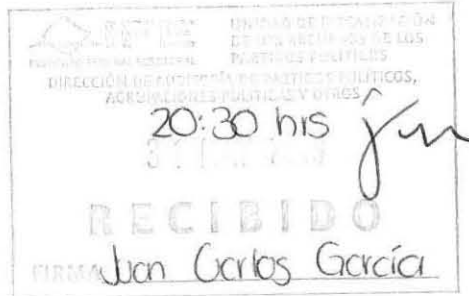 IFE UNIDAD DE FISCALIZACIÓN
DE LOS RECURSOS DE LOS
INSTITUTO FEDERAL ELECTORAL PARTIDOS POLÍTICOS
DIRECCIÓN DE AUDITORÍA DE PARTIDOS POLÍTICOS,
AGRUPACIONES POLÍTICAS Y OTROS
20:30 hrs
RECIBIDO
FIRMA Juan Carlos García